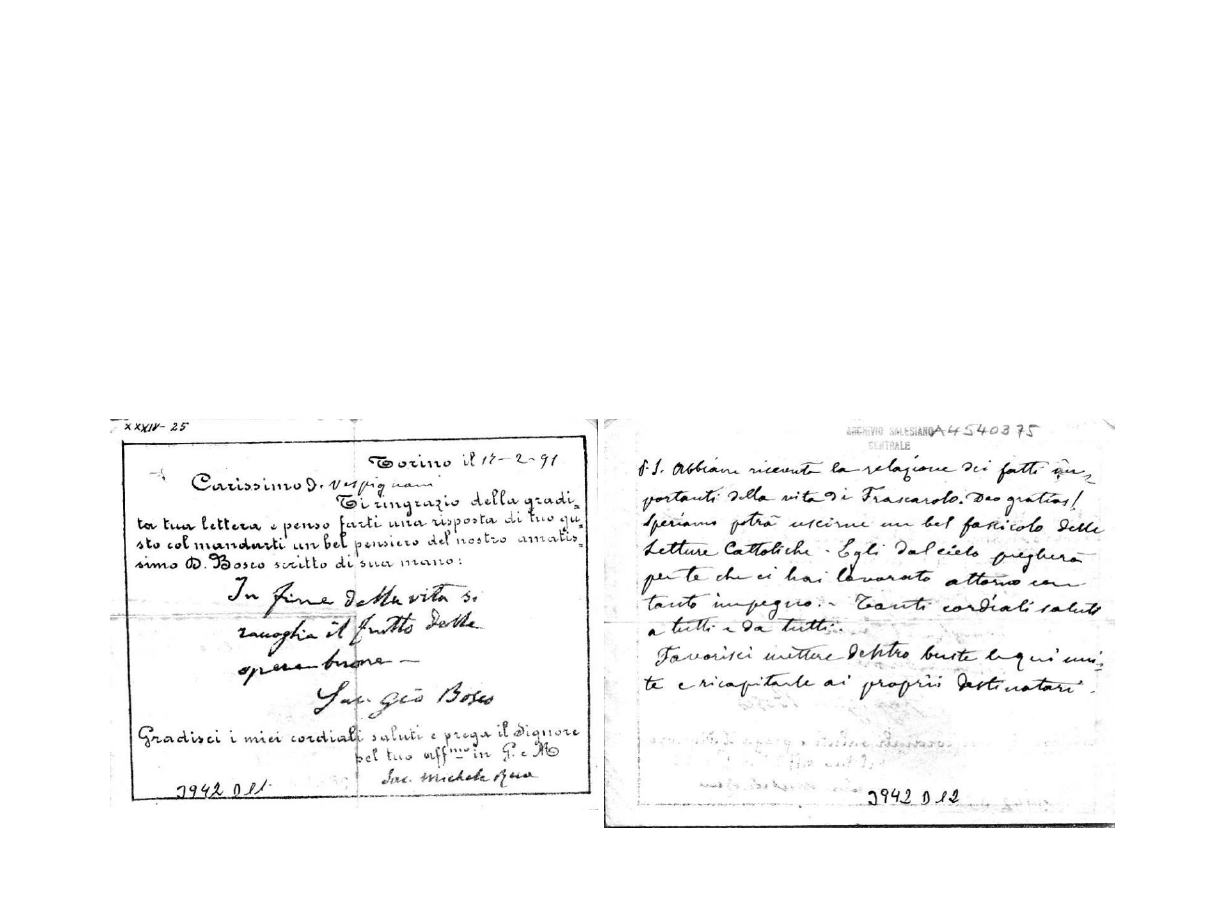 XXXIV-25
Torino il 17-2-91
Carissimo D. Vespignani
Ti ringrazio della gradi=
ta tua lettera e penso farti una risposta di tuo gu=
sto col mandarti un bel pensiero del nostro amatis=
simo D. Bosco scritto di sua mano:
In fine della vita si
raccoglie il frutto delle
opere buone –
Sac. Gio Bosco
Gradisci i miei cordiali saluti e prega il Signore
pel tuo aff.mo in G. e M
Sac. Michele Rua
3942 D 11
ARCHIVIO SALESIANO A4540375
CENTRALE
P.S. Abbiam ricevuta la relazione dei fatti im=
portanti della vita di Frascarolo. Deo gratias!
Speriamo potrà uscirne un bel fascicolo delle
Letture Cattoliche. Egli dal cielo pregherà
per te che ci hai lavorato attorno con
tanto impegno. – Tanti cordiali saluti
a tutti e da tutti.
Favorisci mettere dentro buste le qui uni=
te e ricapitarle ai proprii destinatari.
3942 D 12